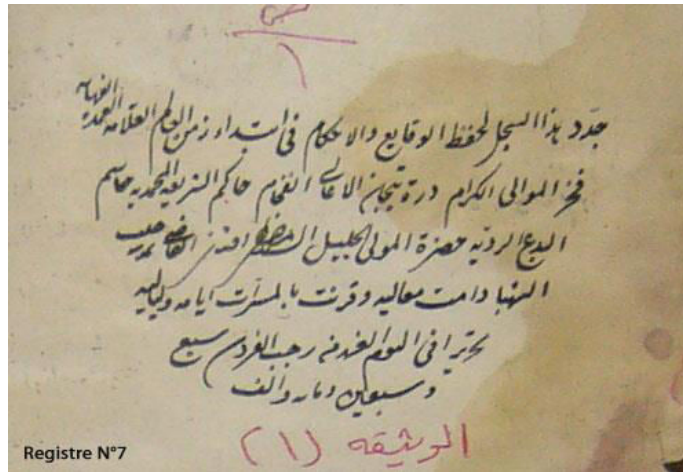 ص
١
جدد هذا السجل لحفظ الوقايع والاحكام فى ابتداء زمن العالم العلامه العمدة الفهامه
فخر الموالى الكرام درة تيجان الاعالى الفخام حاكم الشريعه المحمديه حاسم
البدع الرديه حضرة المولى الجليل افندى القاضى بمدينه
دامت معاليه وقرنت بالمسرات ايامه ولياليه
تحريرا فى اليوم الغرة من رجب الفرد سنة سبع
وسبعين ومايه والف
الوثيقه (١)
Registre N°7